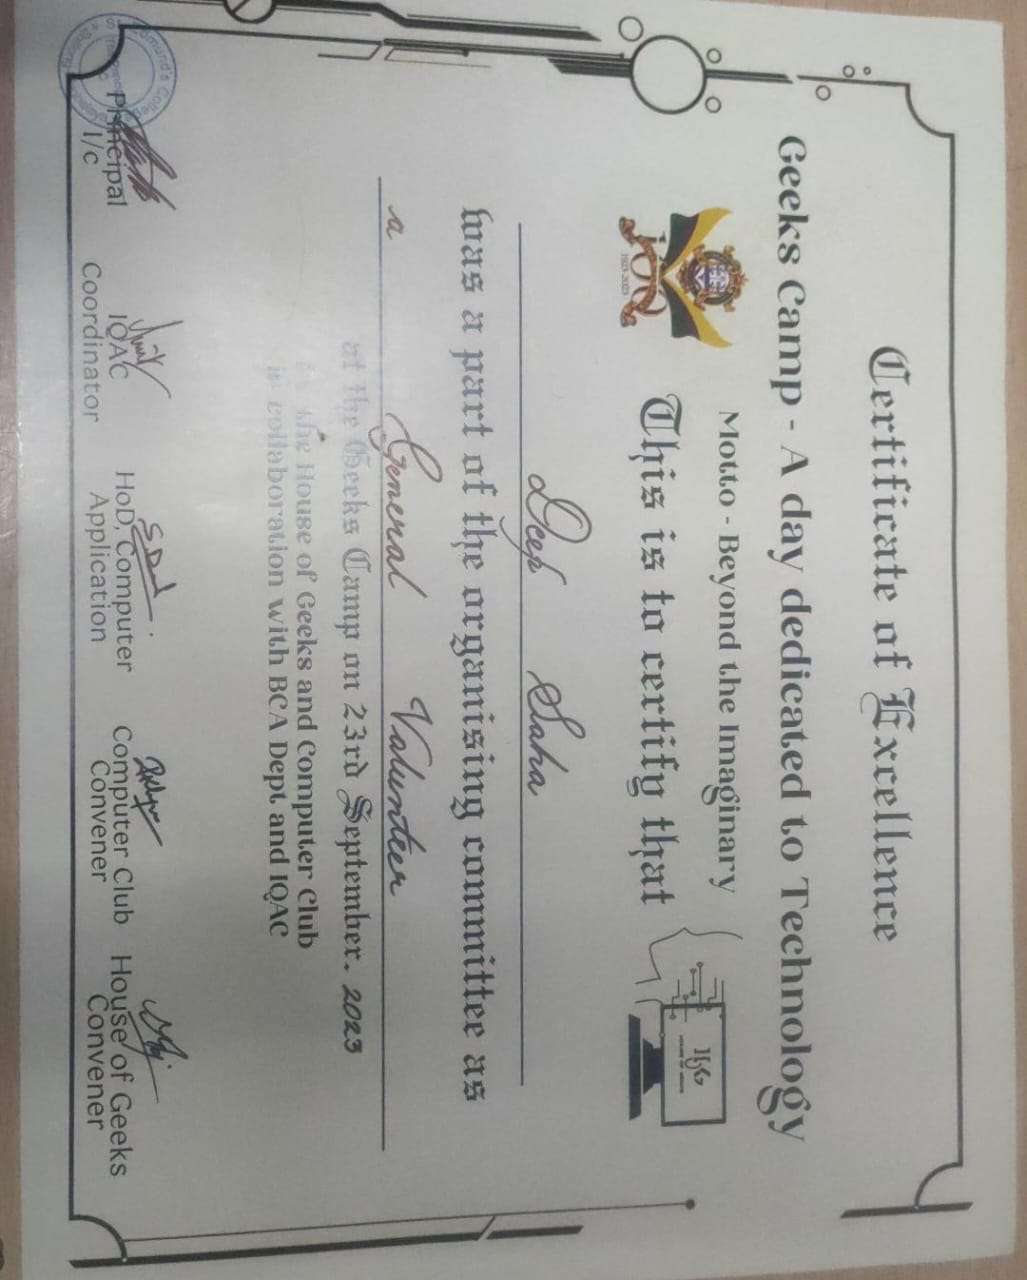 Certificate of Excellence
Geeks Camp - A day dedicated to Technology
Motto - Beyond the Imaginary
This is to certify that
100
1923-2023
Deep Saha
was a part of the organising committee as
a General Valunteer
at the Geeks Camp on 23rd September. 2023
the House of Geeks and Computer Club
collaboration with BCA Dept and IQAC
Principal
I/c
IQAC
Coordinator
HoD, Computer
Application
Computer Club
Convener
House of Geeks
Convener